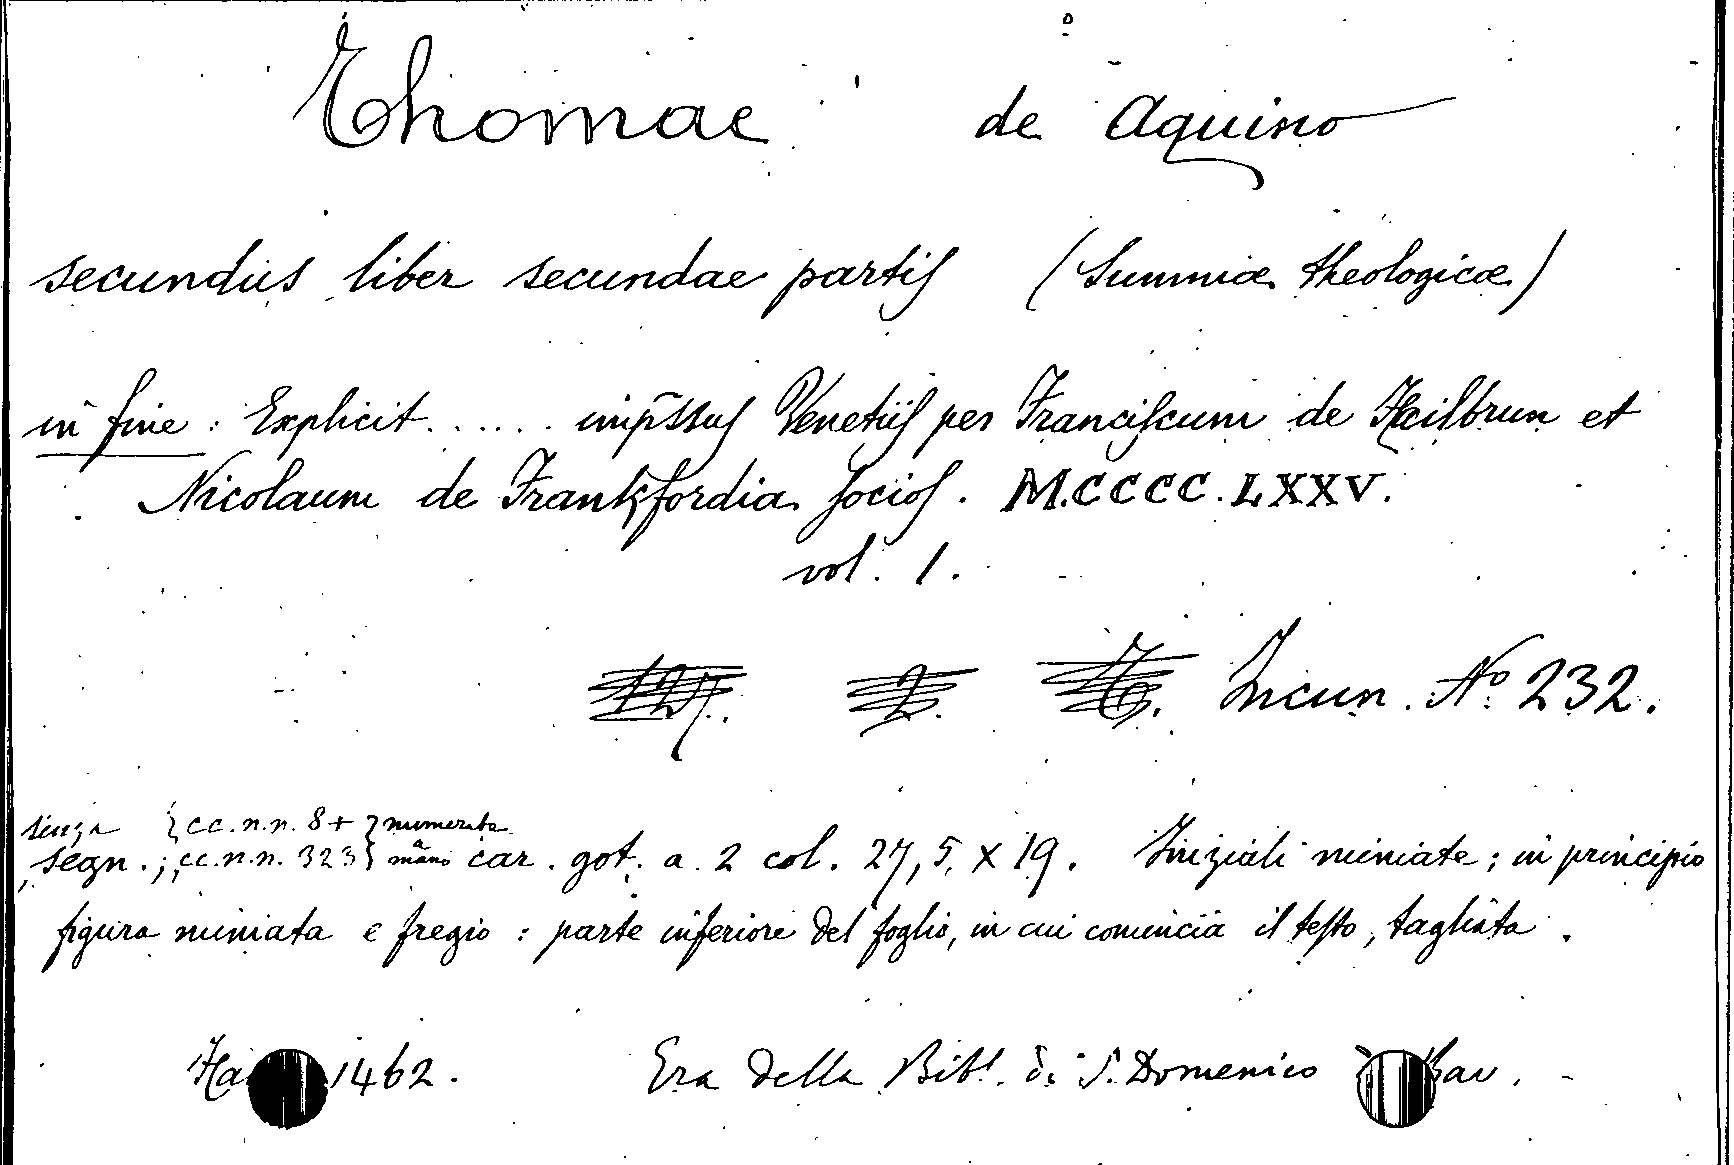 Thomae de Aquino
secundus liber secundae partis (Summæ theologicæ)
in fine : Explicit ...... imp̃ssus Venetiis per Franciscum de Heilbrun et
Nicolaum de Frankfordia socios . M.CCCC.LXXV.
vol. 1.
Incun. Nº 232.
senza } cc. n. n. 8 + } numerate
segn. ; cc. n. n. 323 } a mano car. got. a 2 col. 27,5 x 19. Iniziali miniate ; in principio
figura miniata e fregio : parte inferiore del foglio, in cui comincia il testo, tagliata .
1462. Era della Bibl. di S. Domenico